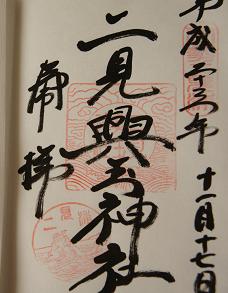 平成二十三年十一月十七日
二見興玉神社
奉拝